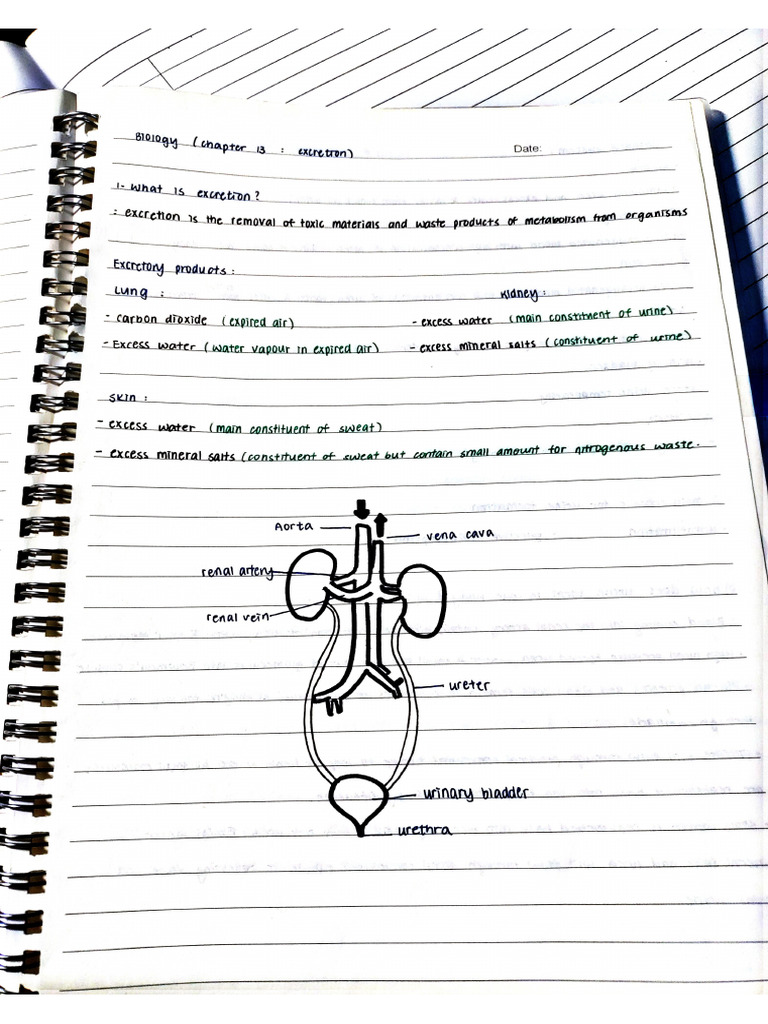 Biology (chapter 13 : excretion)
Date:
1- what is excretion?
: excretion is the removal of toxic materials and waste products of metabolism from organisms
Excretory products :
Lung :
Kidney :
- carbon dioxide (expired air)
- excess water (main constituent of urine)
- Excess water (water vapour in expired air)
- excess mineral salts (constituent of urine)
skin :
- excess water (main constituent of sweat)
- excess mineral salts (constituent of sweat but contain small amount for nitrogenous waste.
Aorta
vena cava
renal artery
renal vein
ureter
urinary bladder
urethra